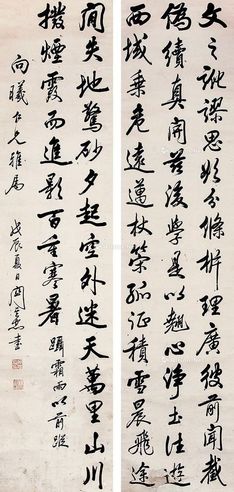 文之訛謬思欲分條析理廣彼前聞截
偽續真開茲後學是以翹心淨土往遊
西域乘危遠邁杖策孤征積雪晨飛途
間失地驚砂夕起空外迷天萬里山川
撥煙霞而進影百重寒暑躡霜雨以前蹤
向曦仁兄雅屬
戊辰夏日書